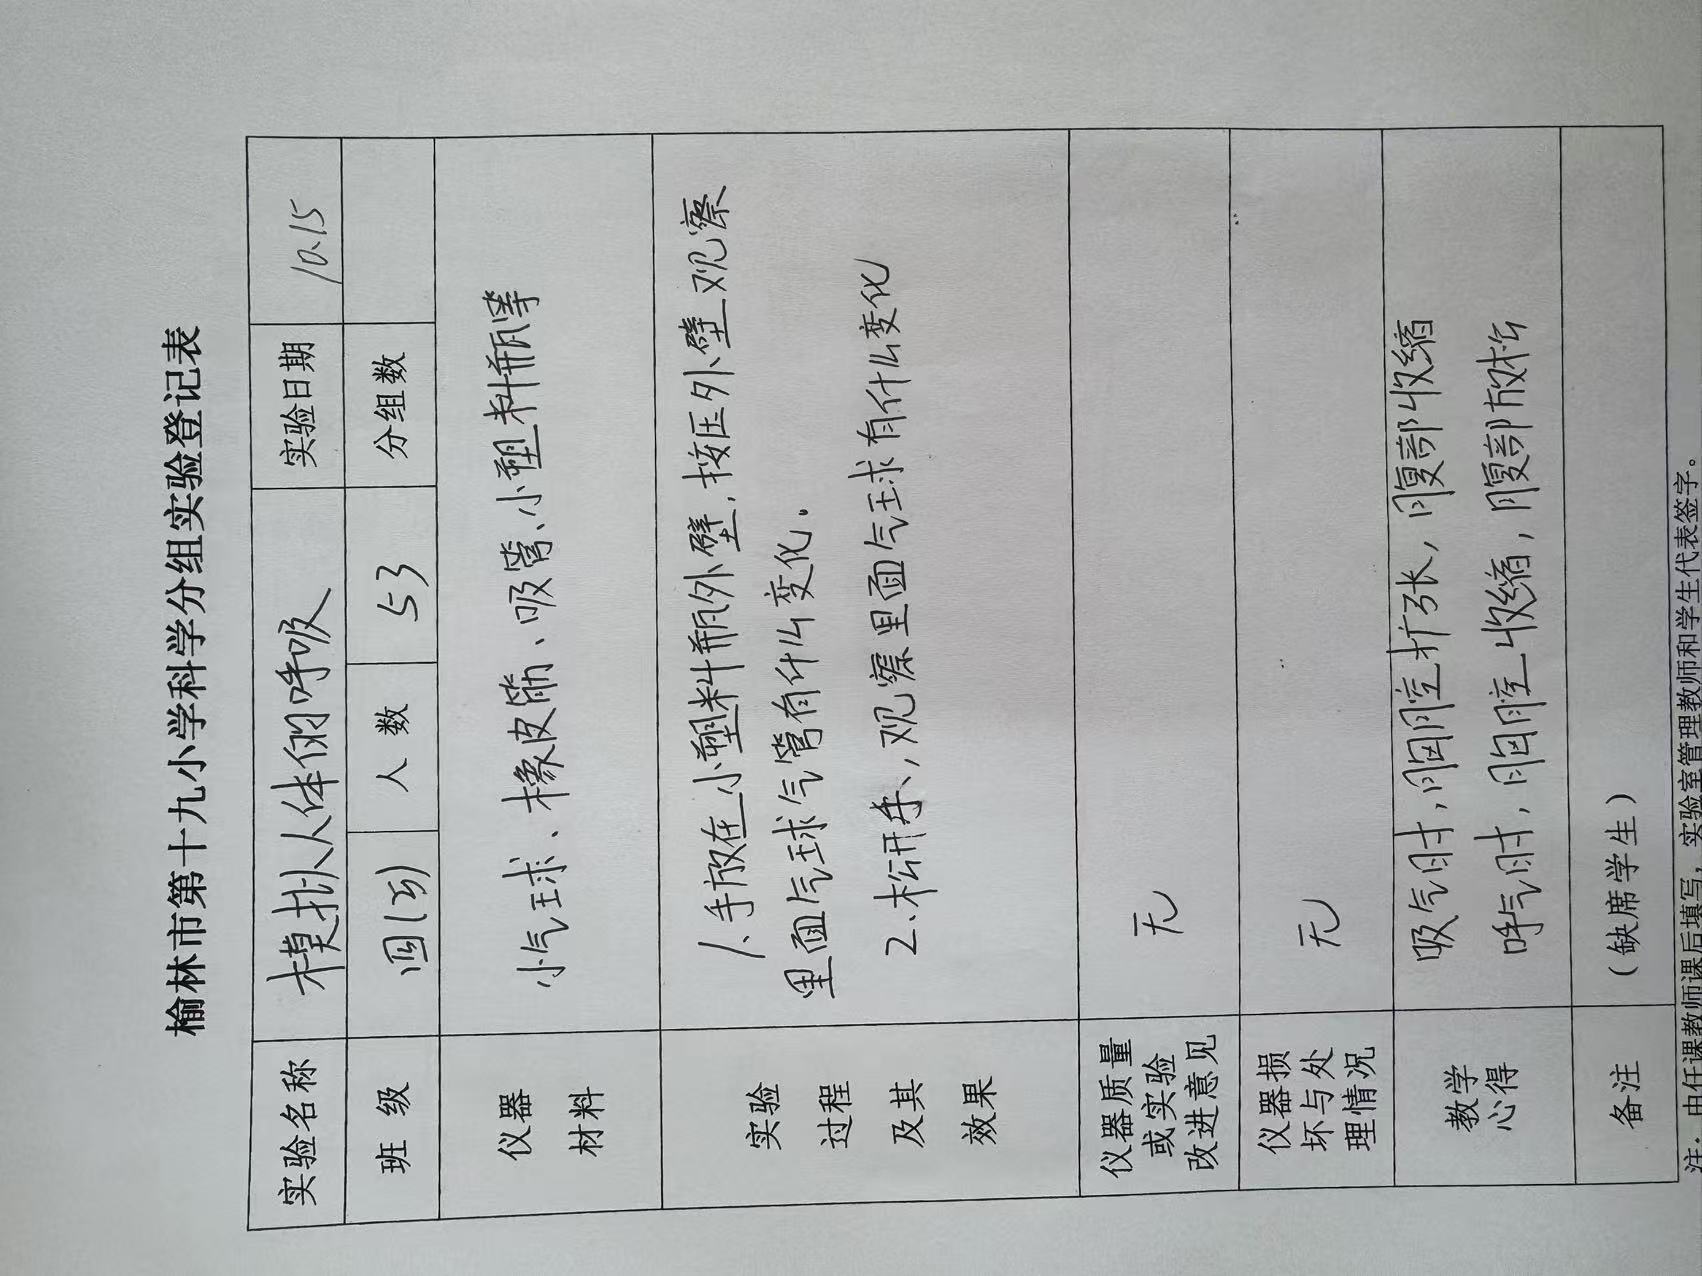 榆林市第十九小学科学分组实验登记表
实验名称 模拟人体的呼吸 实验日期 10.15
班 级 四(5) 人 数 53 分组数
仪器
材料
小气球、橡皮筋、吸管、小塑料瓶等
实验
过程
及其
效果
1.手放在小塑料瓶外壁,按压外壁观察
里面气球气管有什么变化.
2.松开手、观察里面气球有什么变化
仪器质量
或实验
改进意见
无
仪器损
坏与处
理情况
无
教学
心得
吸气时,胸腔扩张,腹部收缩
呼气时,胸腔收缩,腹部放松
备注 (缺席学生)
注:由任课教师课后填写,实验室管理教师和学生代表签字。